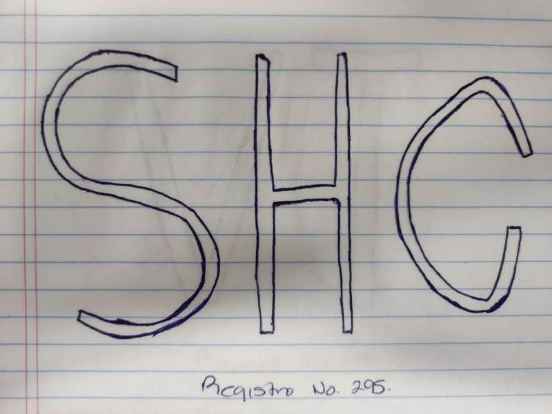 SHC
Registro No. 295.